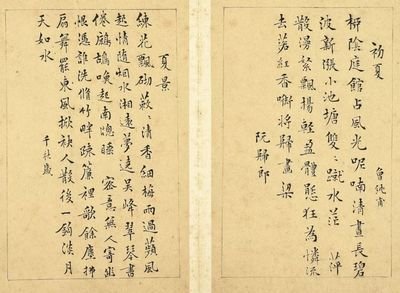 初夏
曾純甫
柳陰庭館占風光呢喃清晝長碧
波新漲小池塘雙〻蹴水茫 萍
散漫絮飄揚輕盈體態狂為憐流
去落紅香啣將歸畫梁
阮歸郎
夏景
楝花飄砌蔌〻清香細梅雨過蘋風
起情隨烟水湘遠夢遶吳峰翠琴書
倦鷓鴣喚起南窓睡 密意無人寄幽
恨憑誰洗脩竹畔疎簾裡歌餘塵拂
扇舞罷東風掀袂人散後一鈎淡月
天如水
千秋歲